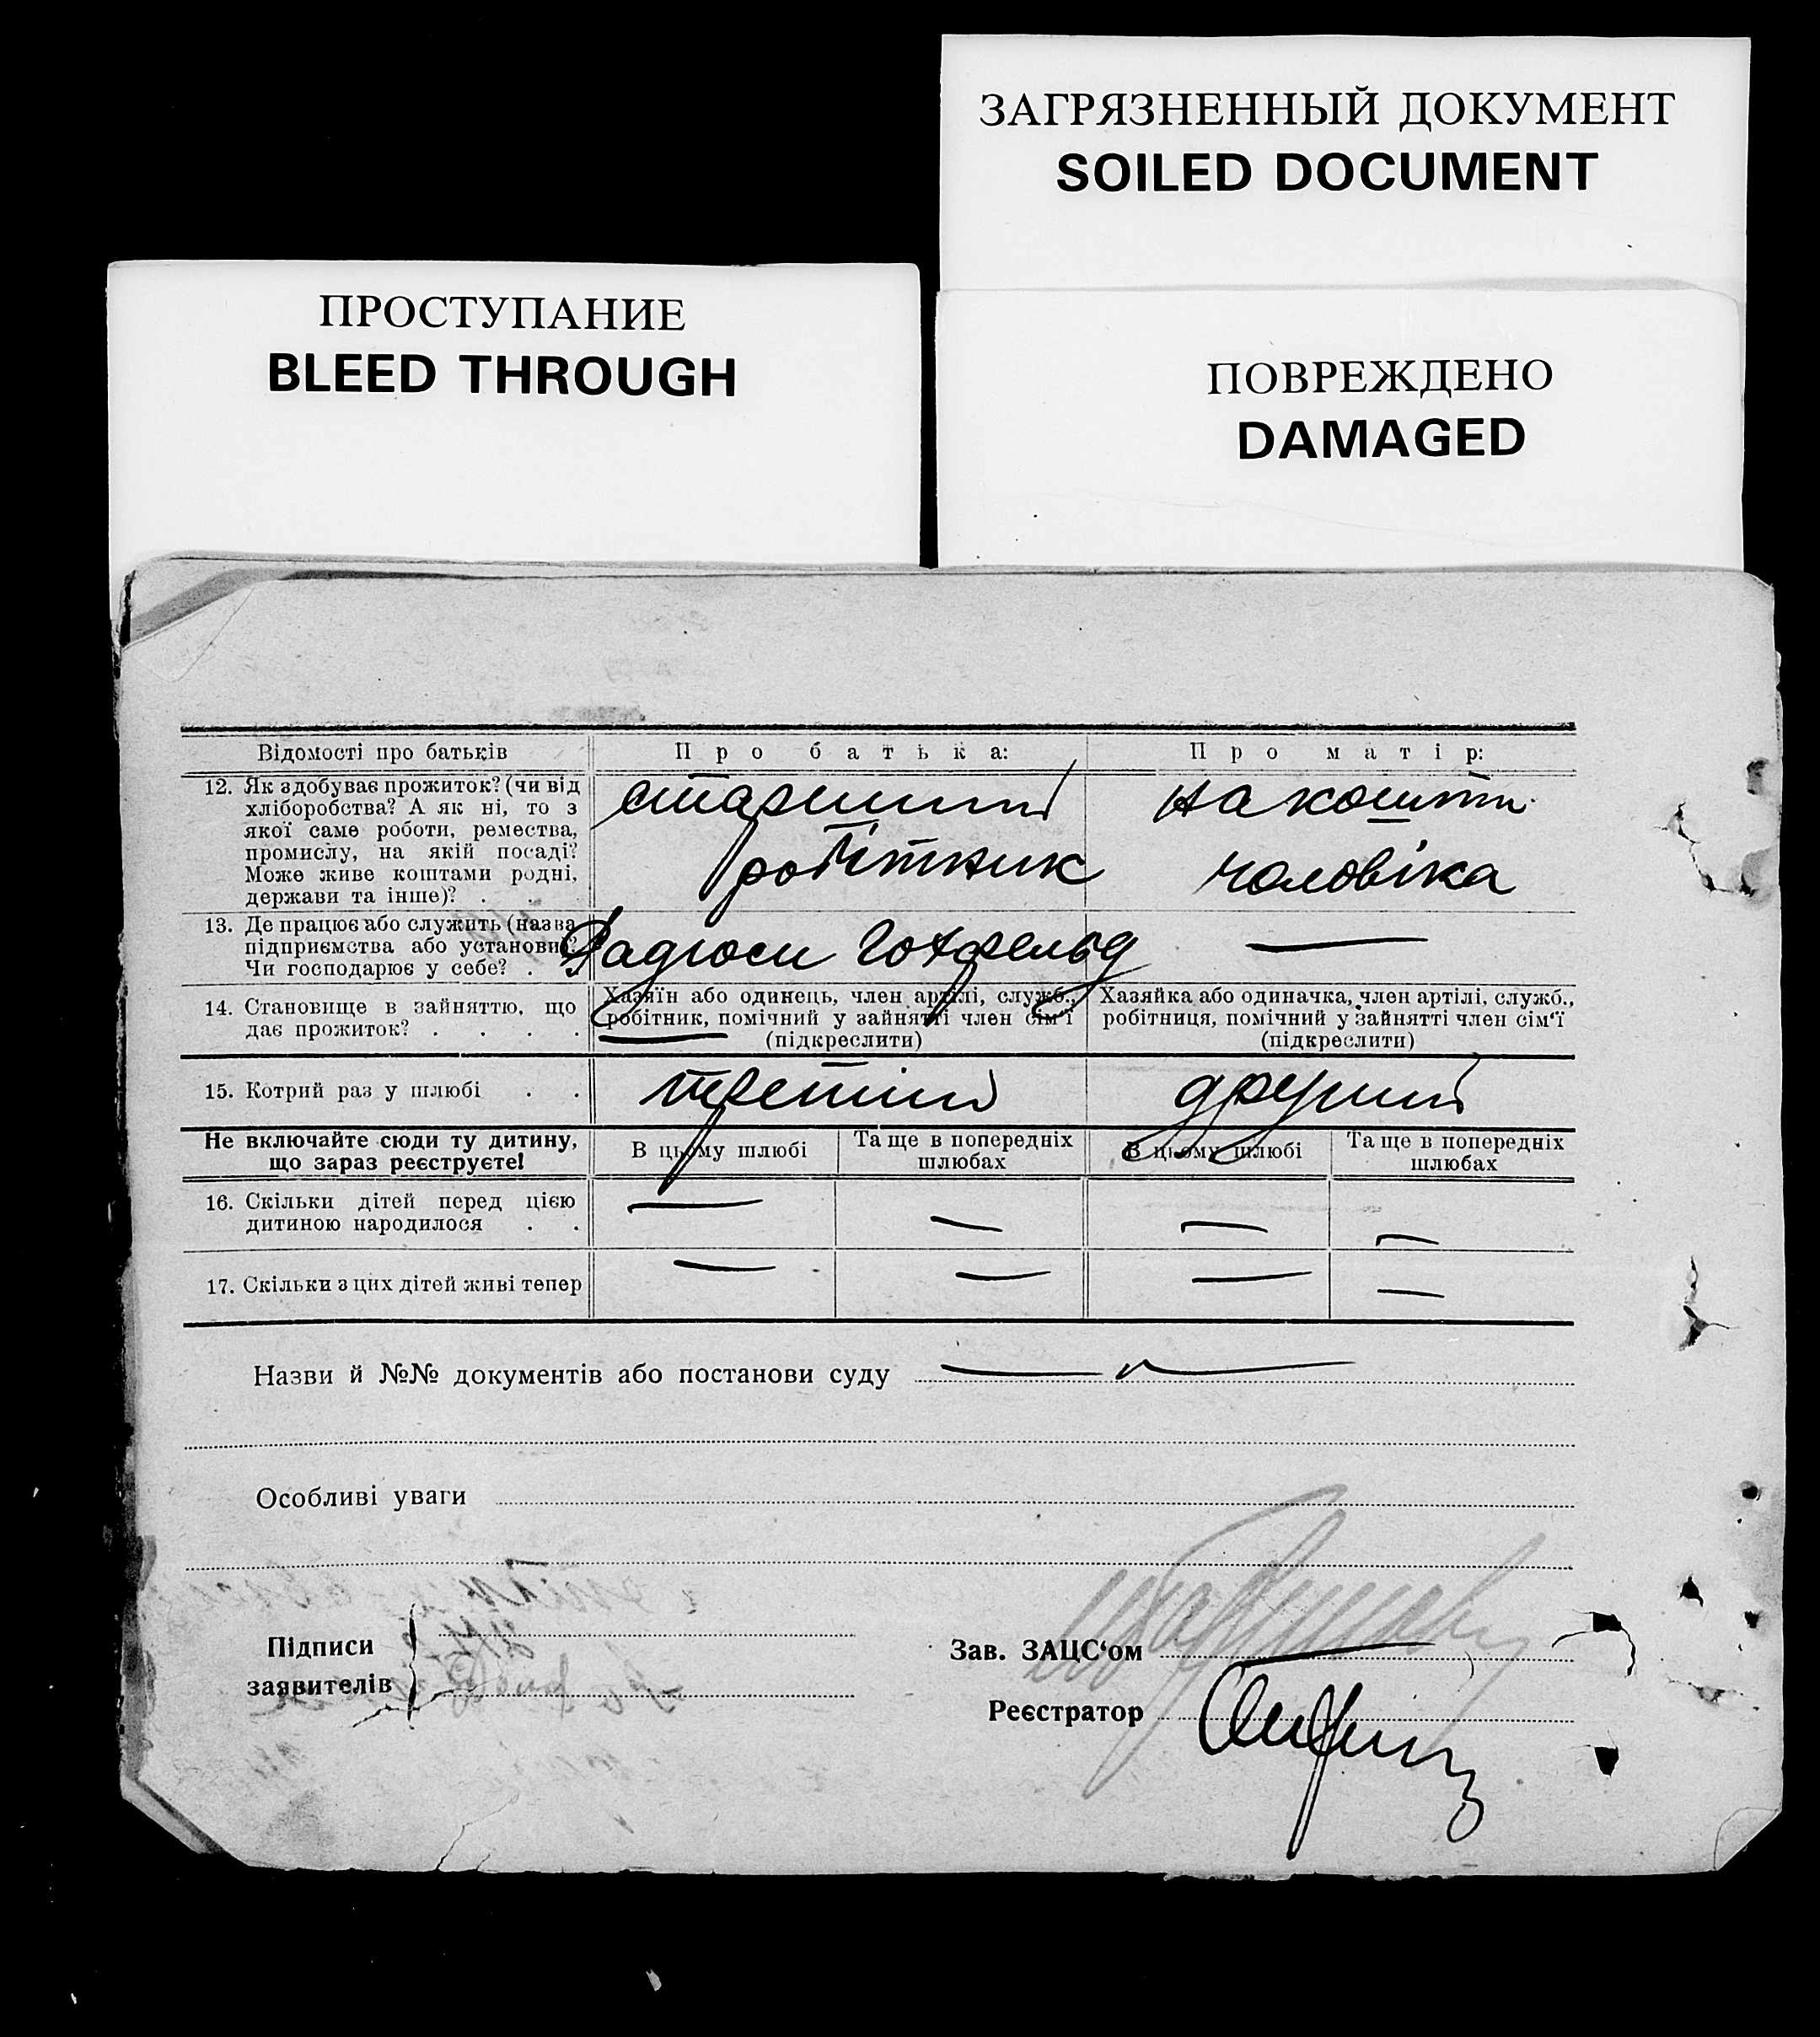 ЗАГРЯЗНЕННЫЙ ДОКУМЕНТ
SOILED DOCUMENT
ПРОСТУПАНИЕ
BLEED THROUGH
ПОВРЕЖДЕНО
DAMAGED
Відомості про батьків
Про батька:
Про матір:
12. Як здобуває прожиток? (чи від
хліборобства? А як ні, то з
якої саме роботи, ремества,
промислу, на якій посаді?
Може живе коштами родні,
держави та інше)? . . .
старший
робітник
на кошти
чоловіка
13. Де працює або служить (назва
підприємства або установи)?
Чи господарює у себе? .
—
14. Становище в зайняттю, що
дає прожиток? . . . .
Хазяїн або одинець, член артілі, служб.,
робітник, помічний у зайнятті член сім'ї
(підкреслити)
Хазяйка або одиначка, член артілі, служб.,
робітниця, помічний у зайнятті член сім'ї
(підкреслити)
15. Котрий раз у шлюбі . .
третій
другий
Не включайте сюди ту дитину,
що зараз реєструєте!
В цьому шлюбі
Та ще в попередніх
шлюбах
В цьому шлюбі
Та ще в попередніх
шлюбах
16. Скільки дітей перед цією
дитиною народилося . .
— — — —
17. Скільки з цих дітей живі тепер
— — — —
Назви й №№ документів або постанови суду
Особливі уваги
Підписи
заявителів
Зав. ЗАЦС'ом
Реєстратор